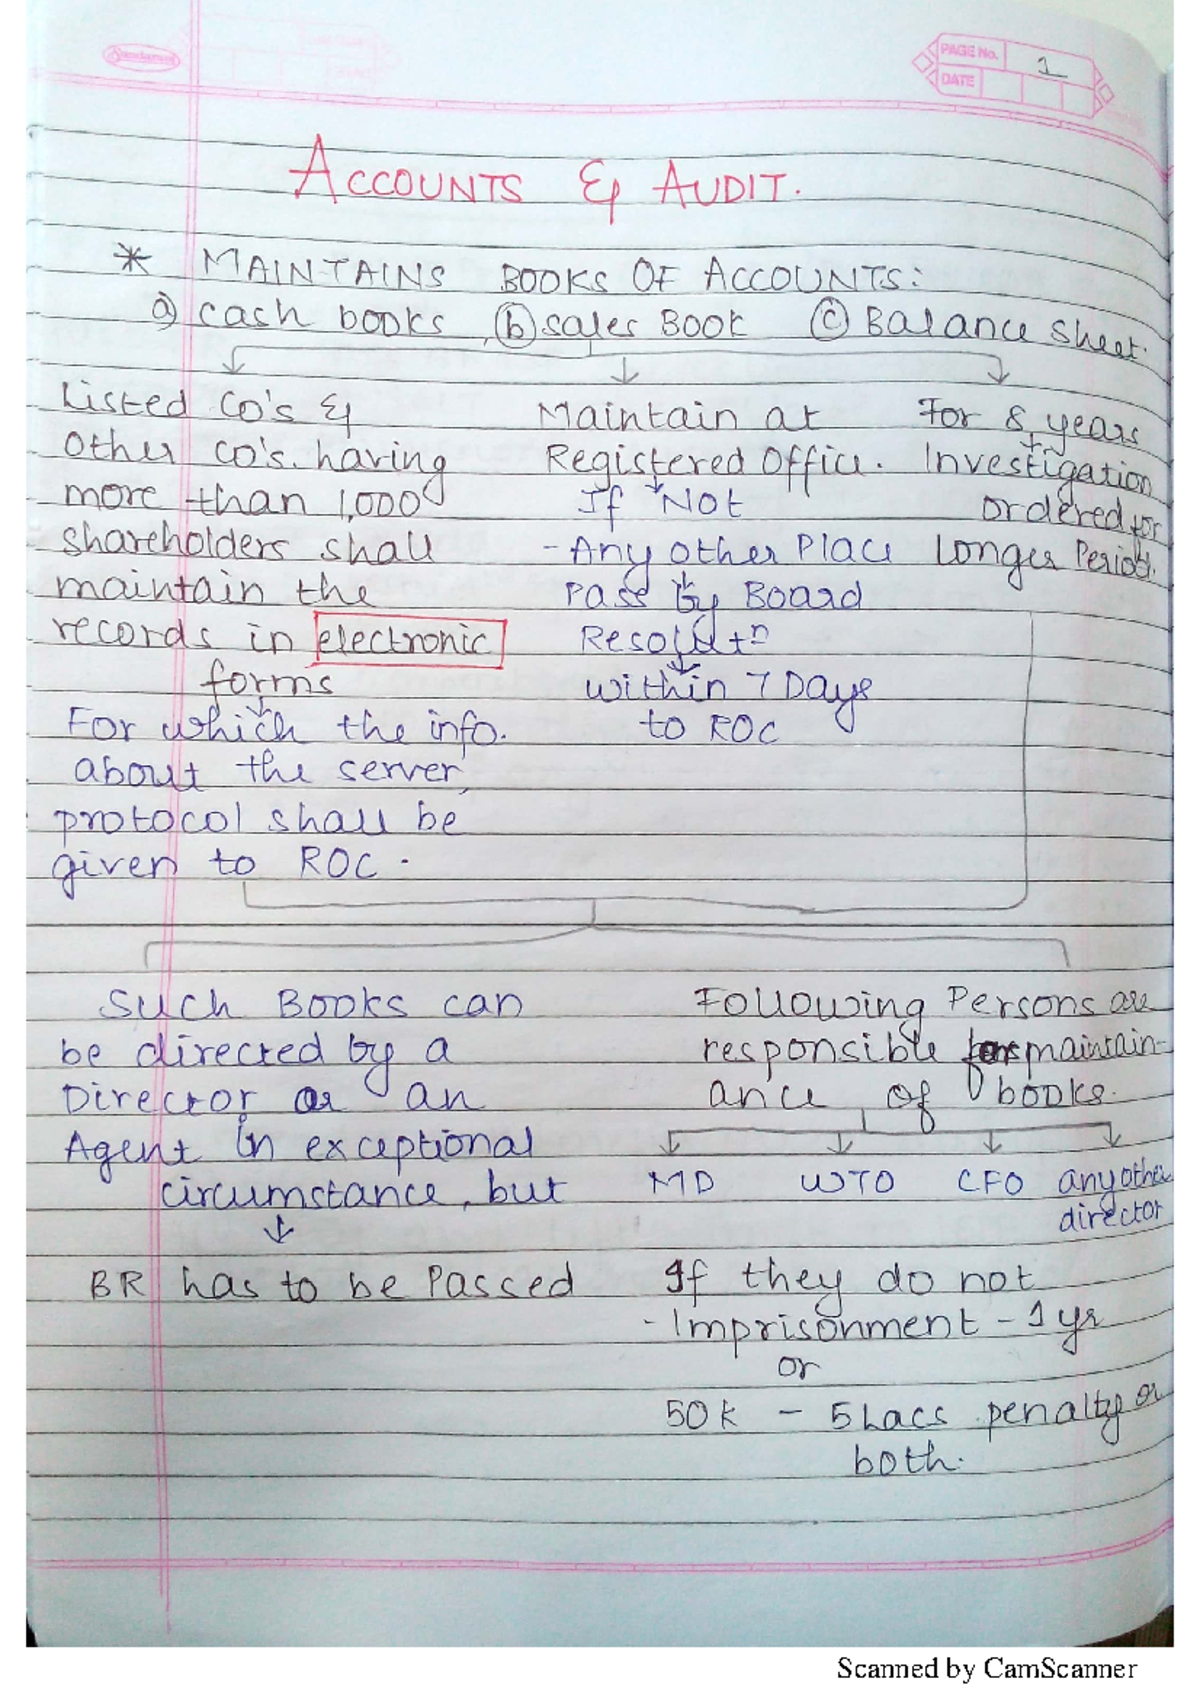 Standard
PAGE No. 1
DATE
ACCOUNTS & AUDIT.
* MAINTAINS BOOKS OF ACCOUNTS:
a) cash books, (b) sales Book (c) Balance sheet.
Listed co's &
other co's. having
more than 1,000
shareholders shall
maintain the
records in electronic
forms
For which the info.
about the server,
protocol shall be
given to ROC.
Maintain at
Registered office.
If Not
- Any other Place
Pass by Board
Resolutn
within 7 Days
to ROC
For 8 years
Investigation
ordered for
Longer Period.
Such Books can
be directed by a
Director or an
Agent in exceptional
circumstance, but
BR has to be Passed
Following Persons are
responsible for maintain-
ance of books.
MD WTD CFO any other
director
If they do not
- Imprisonment - 1 yr
or
50k - 5 Lacs penalty or
both.
Scanned by CamScanner